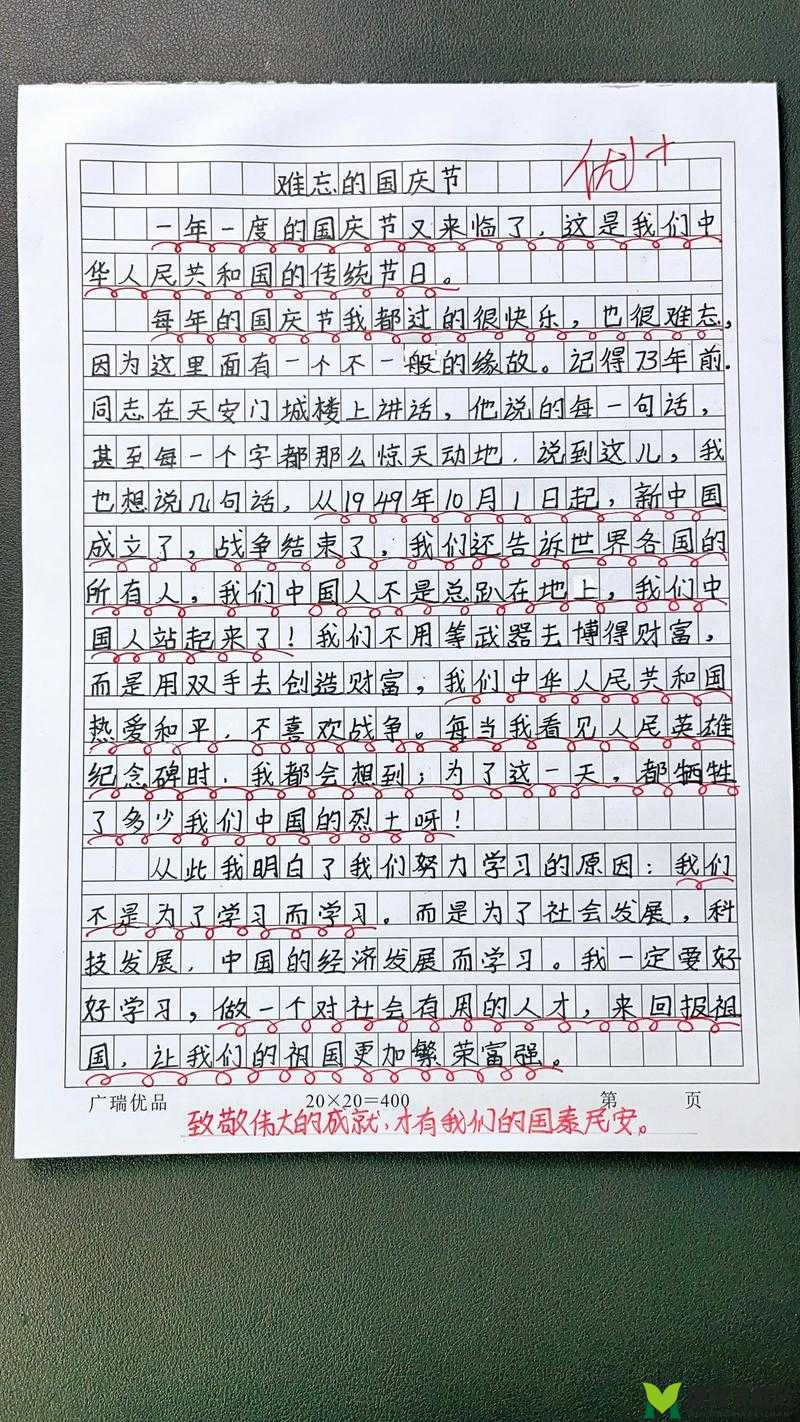 难忘的国庆节
优+
一年一度的国庆节又来临了，这是我们中
华人民共和国的传统节日。
每年的国庆节我都过的很快乐，也很难忘，
因为这里面有一个不一般的缘故。记得73年前.
同志在天安门城楼上讲话，他说的每一句话，
甚至每一个字都那么惊天动地．说到这儿，我
也想说几句话，从1949年10月1日起，新中国
成立了，战争结束了，我们还告诉世界各国的
所有人，我们中国人不是总趴在地上，我们中
国人站起来了！我们不用等武器去博得财富，
而是用双手去创造财富；我们中华人民共和国
热爱和平，不喜欢战争。每当我看见人民英雄
纪念碑时，我都会想到；为了这一天，都牺牲
了多少我们中国的烈士呀！
从此我明白了我们努力学习的原因：我们
不是为了学习而学习。而是为了社会发展，科
技发展，中国的经济发展而学习。我一定要好
好学习，做一个对社会有用的人才，来回报祖
国，让我们的祖国更加繁荣富强。
广瑞优品 20×20=400 第 页
致敬伟大的成就，才有我们的国泰民安。